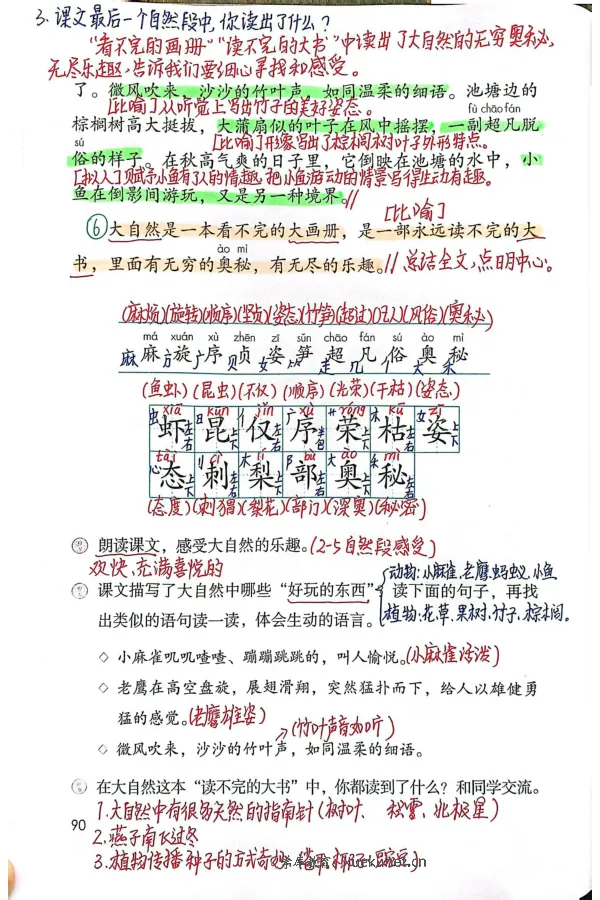 3.课文最后一个自然段中,你读出了什么?
"看不完的画册""读不完的大书"中读出了大自然的无穷奥秘,
无尽乐趣,告诉我们要细心寻找和感受。
了。微风吹来,沙沙的竹叶声,如同温柔的细语。池塘边的
[比喻]从听觉上写出竹子的美好姿态。
fú chāo fán
棕榈树高大挺拔,大蒲扇似的叶子在风中摇摆,一副超凡脱
sú
[比喻]形象写出了棕榈树叶子外形特点。
俗的样子。在秋高气爽的日子里,它倒映在池塘的水中,小
[拟人]赋予小鱼有了人的情趣,把小鱼游动的情景写得生动有趣。
鱼在倒影间游玩,又是另一种境界。//
[比喻]
⑥大自然是一本看不完的大画册,是一部永远读不完的大
ào mì
书,里面有无穷的奥秘,有无尽的乐趣。//总结全文,点明中心。
(麻烦)(旋转)(顺序)(坚贞)(姿态)(竹笋)(超过)(凡人)(风俗)(奥秘)
má xuán xù zhēn zī sǔn chāo fán sú ào mì
麻 旋 序 贞 姿 笋 超 凡 俗 奥 秘
(鱼虾)(昆虫)(不仅)(顺序)(光荣)(干枯)(姿态)
xiā kūn jǐn xù róng kū zī
虾 昆 仅 序 荣 枯 姿
tài cì lí bù ào mì
态 刺 梨 部 奥 秘
(态度)(刺猬)(梨花)(部门)(深奥)(秘密)
朗读课文,感受大自然的乐趣。(2-5自然段感受)
欢快、充满喜悦的
动物:小麻雀、老鹰、蚂蚁、小鱼
课文描写了大自然中哪些"好玩的东西" 读下面的句子,再找
植物:花草、果树、竹子、棕榈。
出类似的语句读一读,体会生动的语言。
◇ 小麻雀叽叽喳喳、蹦蹦跳跳的,叫人愉悦。(小麻雀活泼)
◇ 老鹰在高空盘旋,展翅滑翔,突然猛扑而下,给人以雄健勇
猛的感觉。(老鹰雄姿)
(竹叶声音动听)
◇ 微风吹来,沙沙的竹叶声,如同温柔的细语。
在大自然这本"读不完的大书"中,你都读到了什么?和同学交流。
1.大自然中有很多天然的指南针(树叶、积雪、北极星)
90
2.燕子南飞过冬
3.植物传播种子的方式奇妙